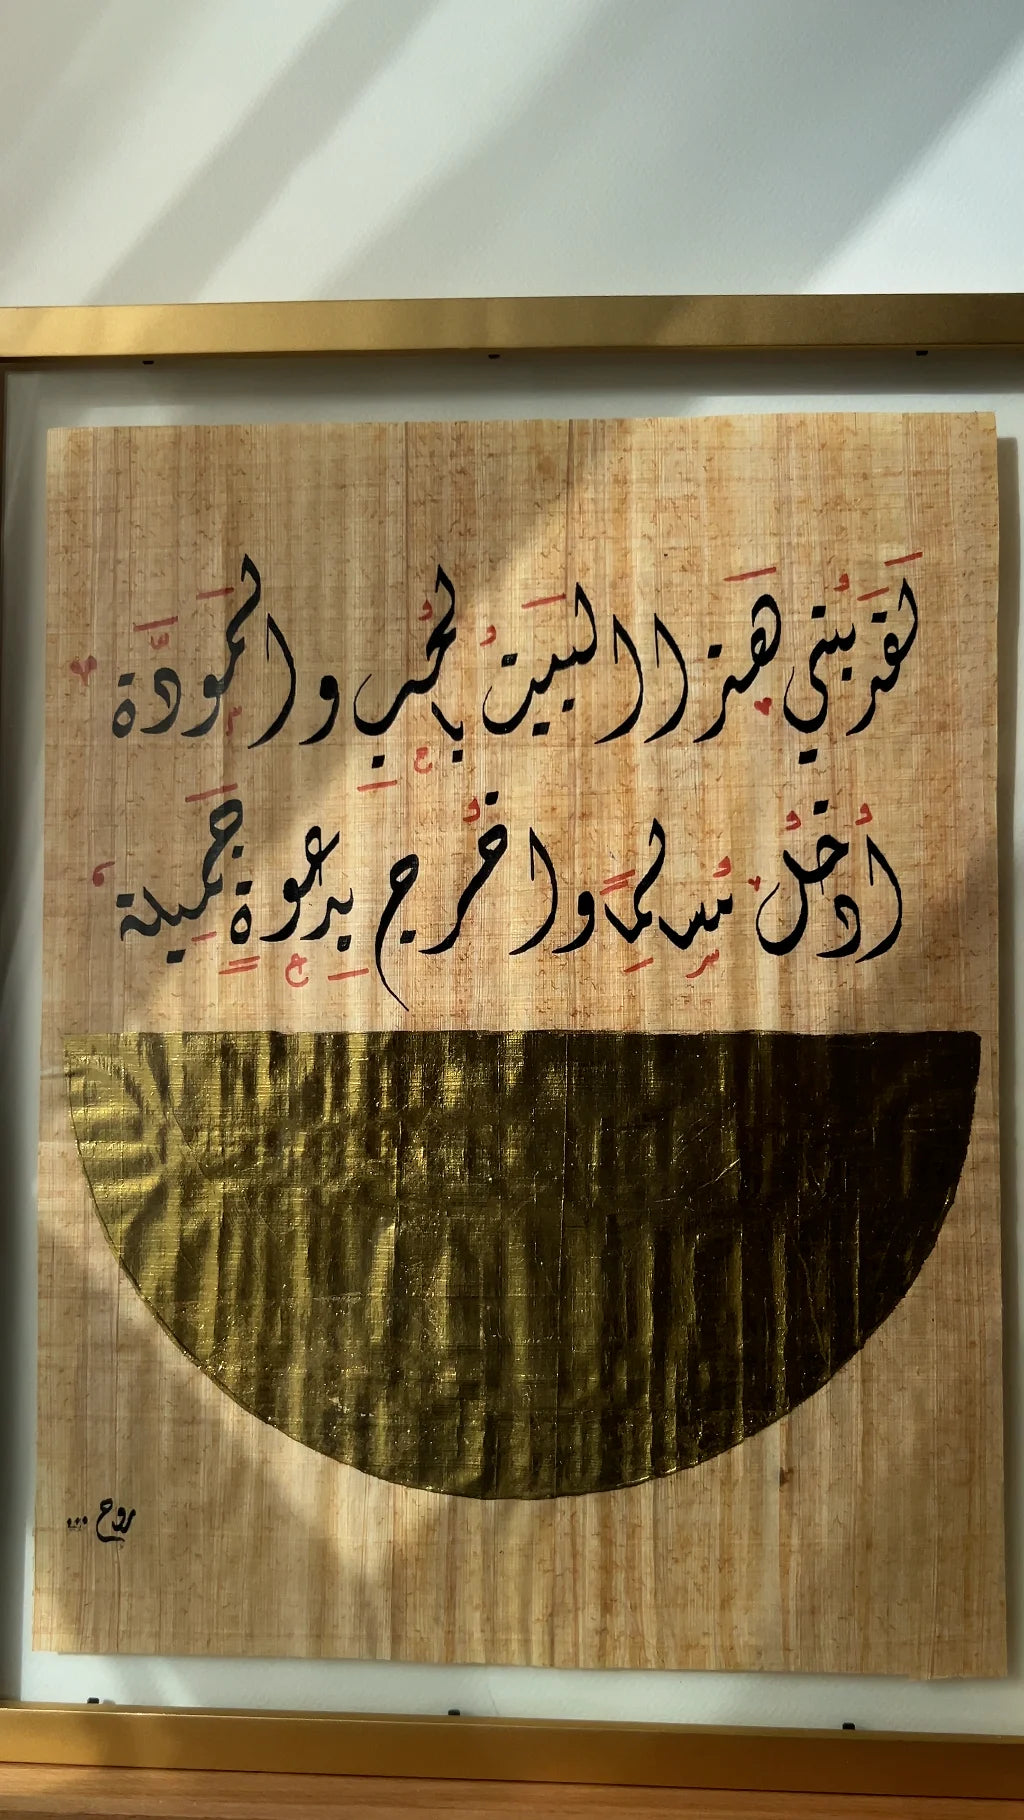 لقد بُني هَذا البَيتُ بالحُبِ والمَودَّة
أُدخُلُ سُالِماً واخُرج بِدعوةٍ جَمِيلة
روح ...